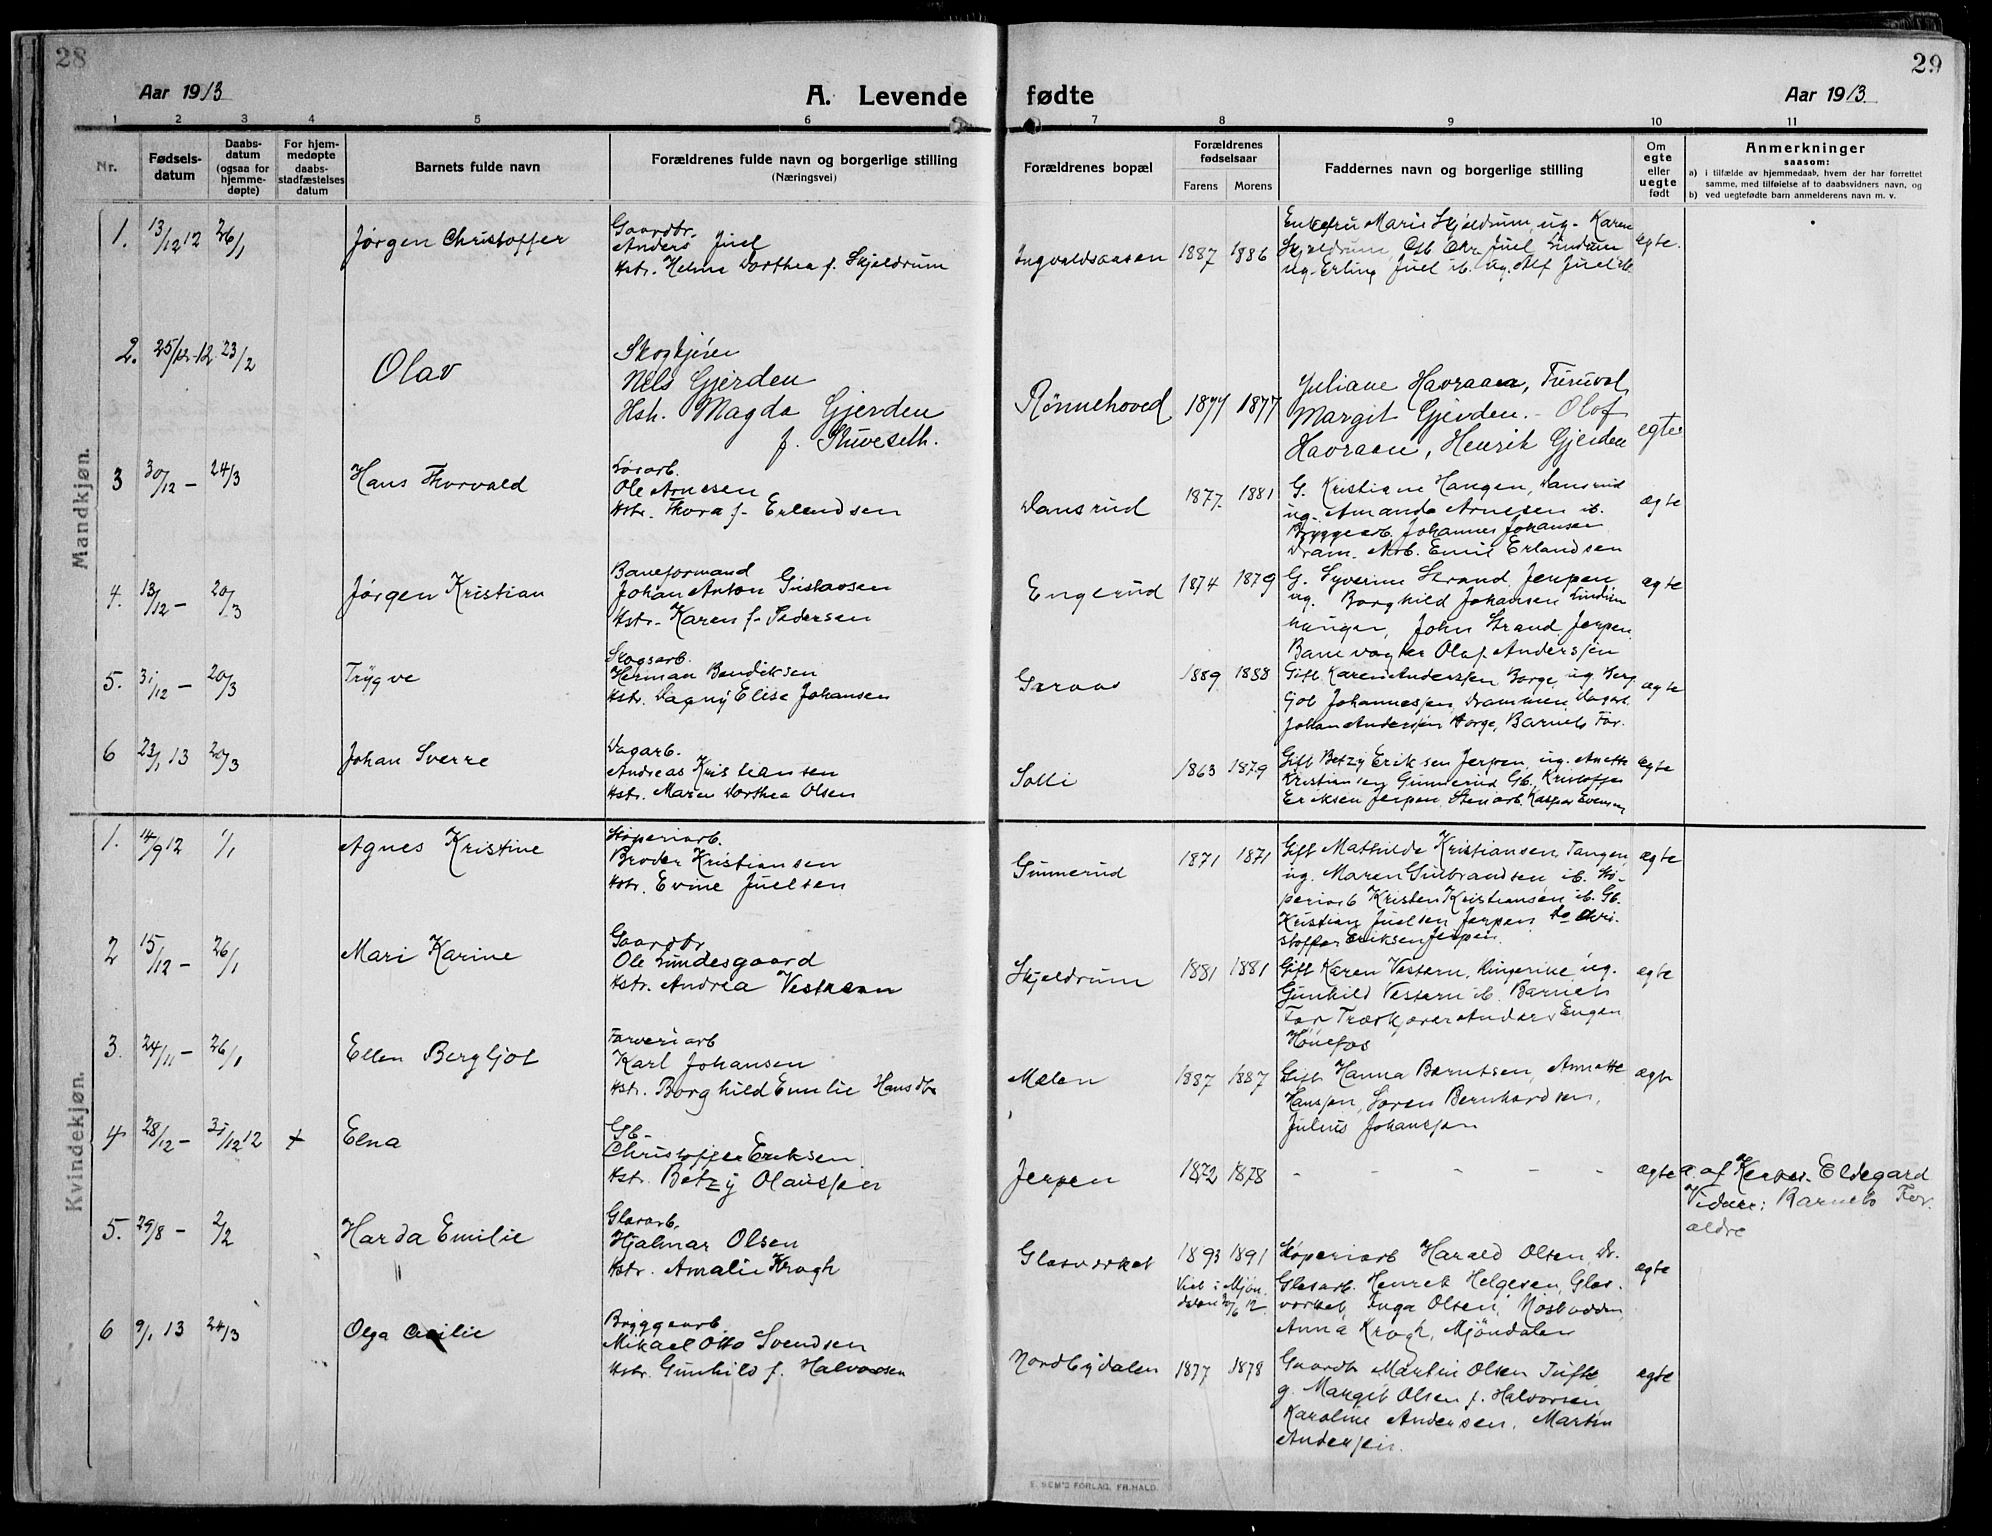 28
29
Aar 1913
A. Levende fødte
Aar 1913
1 2 3 4 5 6 7 8 9 10 11
Nr.
Fødsels-
datum
Daabs-
datum
(ogsaa for
hjemme-
døpte)
For hjem-
medøpte
daabs-
stadfæstelses
datum
Barnets fulde navn
Forældrenes fulde navn og borgerlige stilling
(Næringsvei)
Forældrenes bopæl
Forældrenes
fødselsaar
Farens Morens
Faddernes navn og borgerlige stilling
Om
egte
eller
uegte
født
Anmerkninger
saasom:
a) i tilfælde av hjemmedaab, hvem der har forrettet
samme, med tilføielse af to daabsvidners navn, og
b) ved uegtefødte barn anmelderens navn m. v.
Mandkjøn.
1. 13/12 12 26/1 Jørgen Christoffer
Gaardbr.
Anders Juel
Hstr. Helma Dorthea f. Skjeldrum
Ingvaldsaasen 1887 1886
Enkefru Marie Skjeldrum, ug. Karen
Skjeldrum, Gb. Chr. Juel Lindum
ug. Erling Juel ib. ug. Alf Juel ib.
egte.
2. 25/12-12 23/2 Olav
Skogkjører
Nels Gjerden
Hst. Magda Gjerden
f. Stuveseth.
Rønnehoved 1877 1877
Juliane Havraaen, Furuvol
Margit Gjerden. - Olof
Havraaen, Henrik Gjerden
egte
3 30/12 - 24/3 Hans Thorvald
Løsarb.
Ole Arnesen
Hstr. Thora f. Erlandsen
Dansrud 1877 1881
G. Kristiane Haugen, Dansrud
ug. Amanda Arnesen ib.
Bryggearb. Johannes Johansen
Dram. Arb. Emil Erlandsen
ægte
4. 13/12 - 20/3 Jørgen Kristian
Baneformand
Johan Anton Gustavsen
Hstr. Karen f. Pedersen
Engerud 1874 1879
G. Syverine Strand, Jerpen
ug. Borghild Johansen
John Strand Jerpen
Banevogter Olaf Andersen
ægte
5. 31/12 - 20/3 Trygve
Skogsarb.
Herman Bendiksen
Hstr. Dagny Elise Johansen
Garaas 1889 1888
Gift Karen Anderssen, Borge, ug. Berg
ljot Johannessen, Drammen, Dagarb.
Johan Andersen Horge, Barnets Far.
ægte
6 23/1 13 20/3 Johan Sverre
Dagarb.
Andreas Kristiansen
Hstr. Maren Dorthea Olsen
Solli 1863 1879
Gift Betzy Eriksen Jerpen, ug. Anette
Kristiansen Gunnerud Gb. Kristoffer
Eriksen Jerpen, Stenarb. Kasper Evensen
ægte
Kvindekjøn.
1. 14/9 12 1/1 Agnes Kristine
Støperiarb.
Broder Kristiansen
Hstr. Evine Juelsen
Gunnerud 1871 1871
Gift Mathilde Kristiansen, Tangen,
ug. Maren Gulbrandsen ib. Stø-
periarb Kristen Kristiansen ib. Gb.
Kristian Juelsen Jerpen, do Chri-
stoffer Eriksen Jerpen.
ægte
2 15/12 - 26/1 Mari Karine
Gaardbr
Ole Lundesgaard
Hstr. Andrea Vestern
Skjeldrum 1881 1881
Gift Karen Vestern, Ringerike ug.
Gunhild Vestern ib. Barnets
Far Træskjærer Anders Engen
Hønefos
egte
3. 24/11 - 26/1 Ellen Bergljot
Farveriarb
Karl Johansen
Hstr. Borghild Emilie Hansdtr
Mælen 1887 1887
Gift Hanna Berntsen, Annette
Hanssen, Søren Bernhardsen,
Julius Johanssen
ægte
4 28/12 - 31/12 12 + Elna
Gb.
Christoffer Eriksen
Hstr. Betzy Olaussen
Jerpen 1872 1878
- - - - -
ægte
a. af Eldegard
Vidner: Barnets For-
ældre
5. 29/8 - 2/2 Harda Emilie
Glasarb.
Hjalmar Olsen
Hstr. Amalie Krogh
Glasverket 1893 1891
Viet i Mjøn-
dalen 20/6 12.
Støperiarb Harald Olsen, Dr.
Glasarb. Henrek Helgesen, Glas-
verket, Inga Olsen,
Anna Krogh, Mjøndalen
egte
6 9/1 13 24/3 Olga Cecilie
Bryggearb.
Mikael Otto Svendsen
Hstr. Gunhild f. Halvorsen
Nordbydalen 1877 1878
Gaardb Martin Olsen Tufte,
g. Margit Olsen f. Halvorsen
Karoline Andersen, Martin
Andersen.
egte
E. SEM'S FORLAG, FR.HALD.